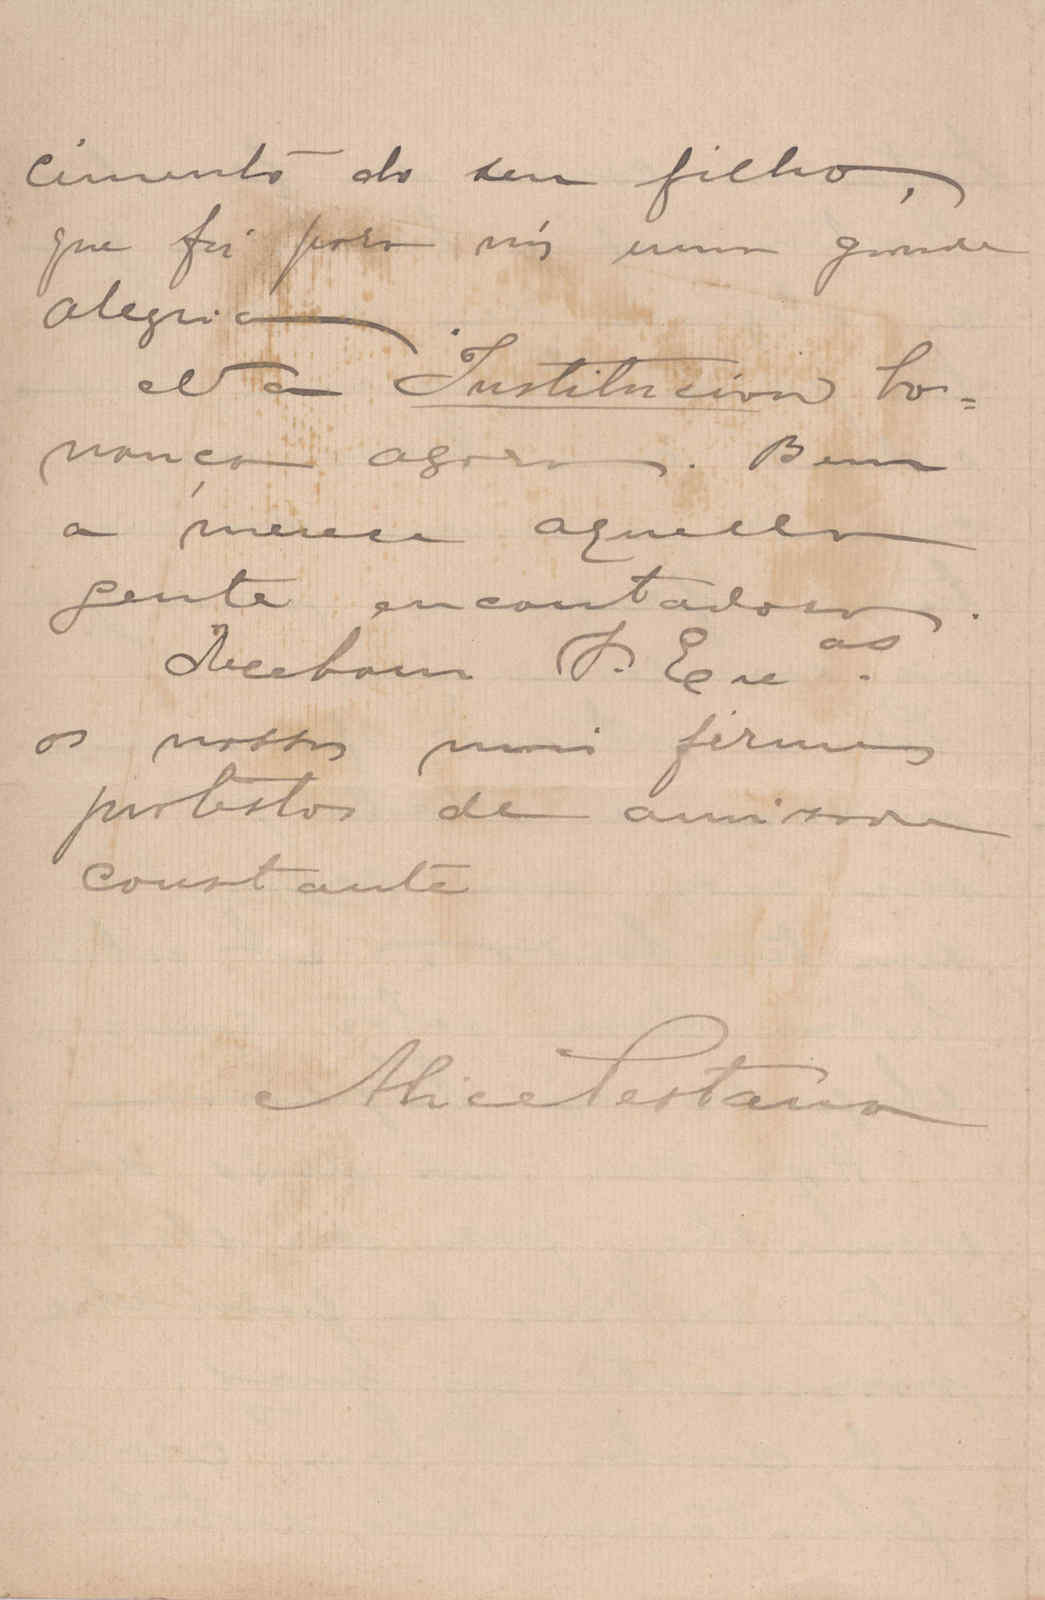 cimento do seu filho,
que foi para nós uma grande
alegria.
Na Institucion bo-
nança agora. Bem
a merece aquella
gente encantadora.
Recebam V. Exc.as
os nossos mais firmes
protestos de amizade
constante
Alice Pestana